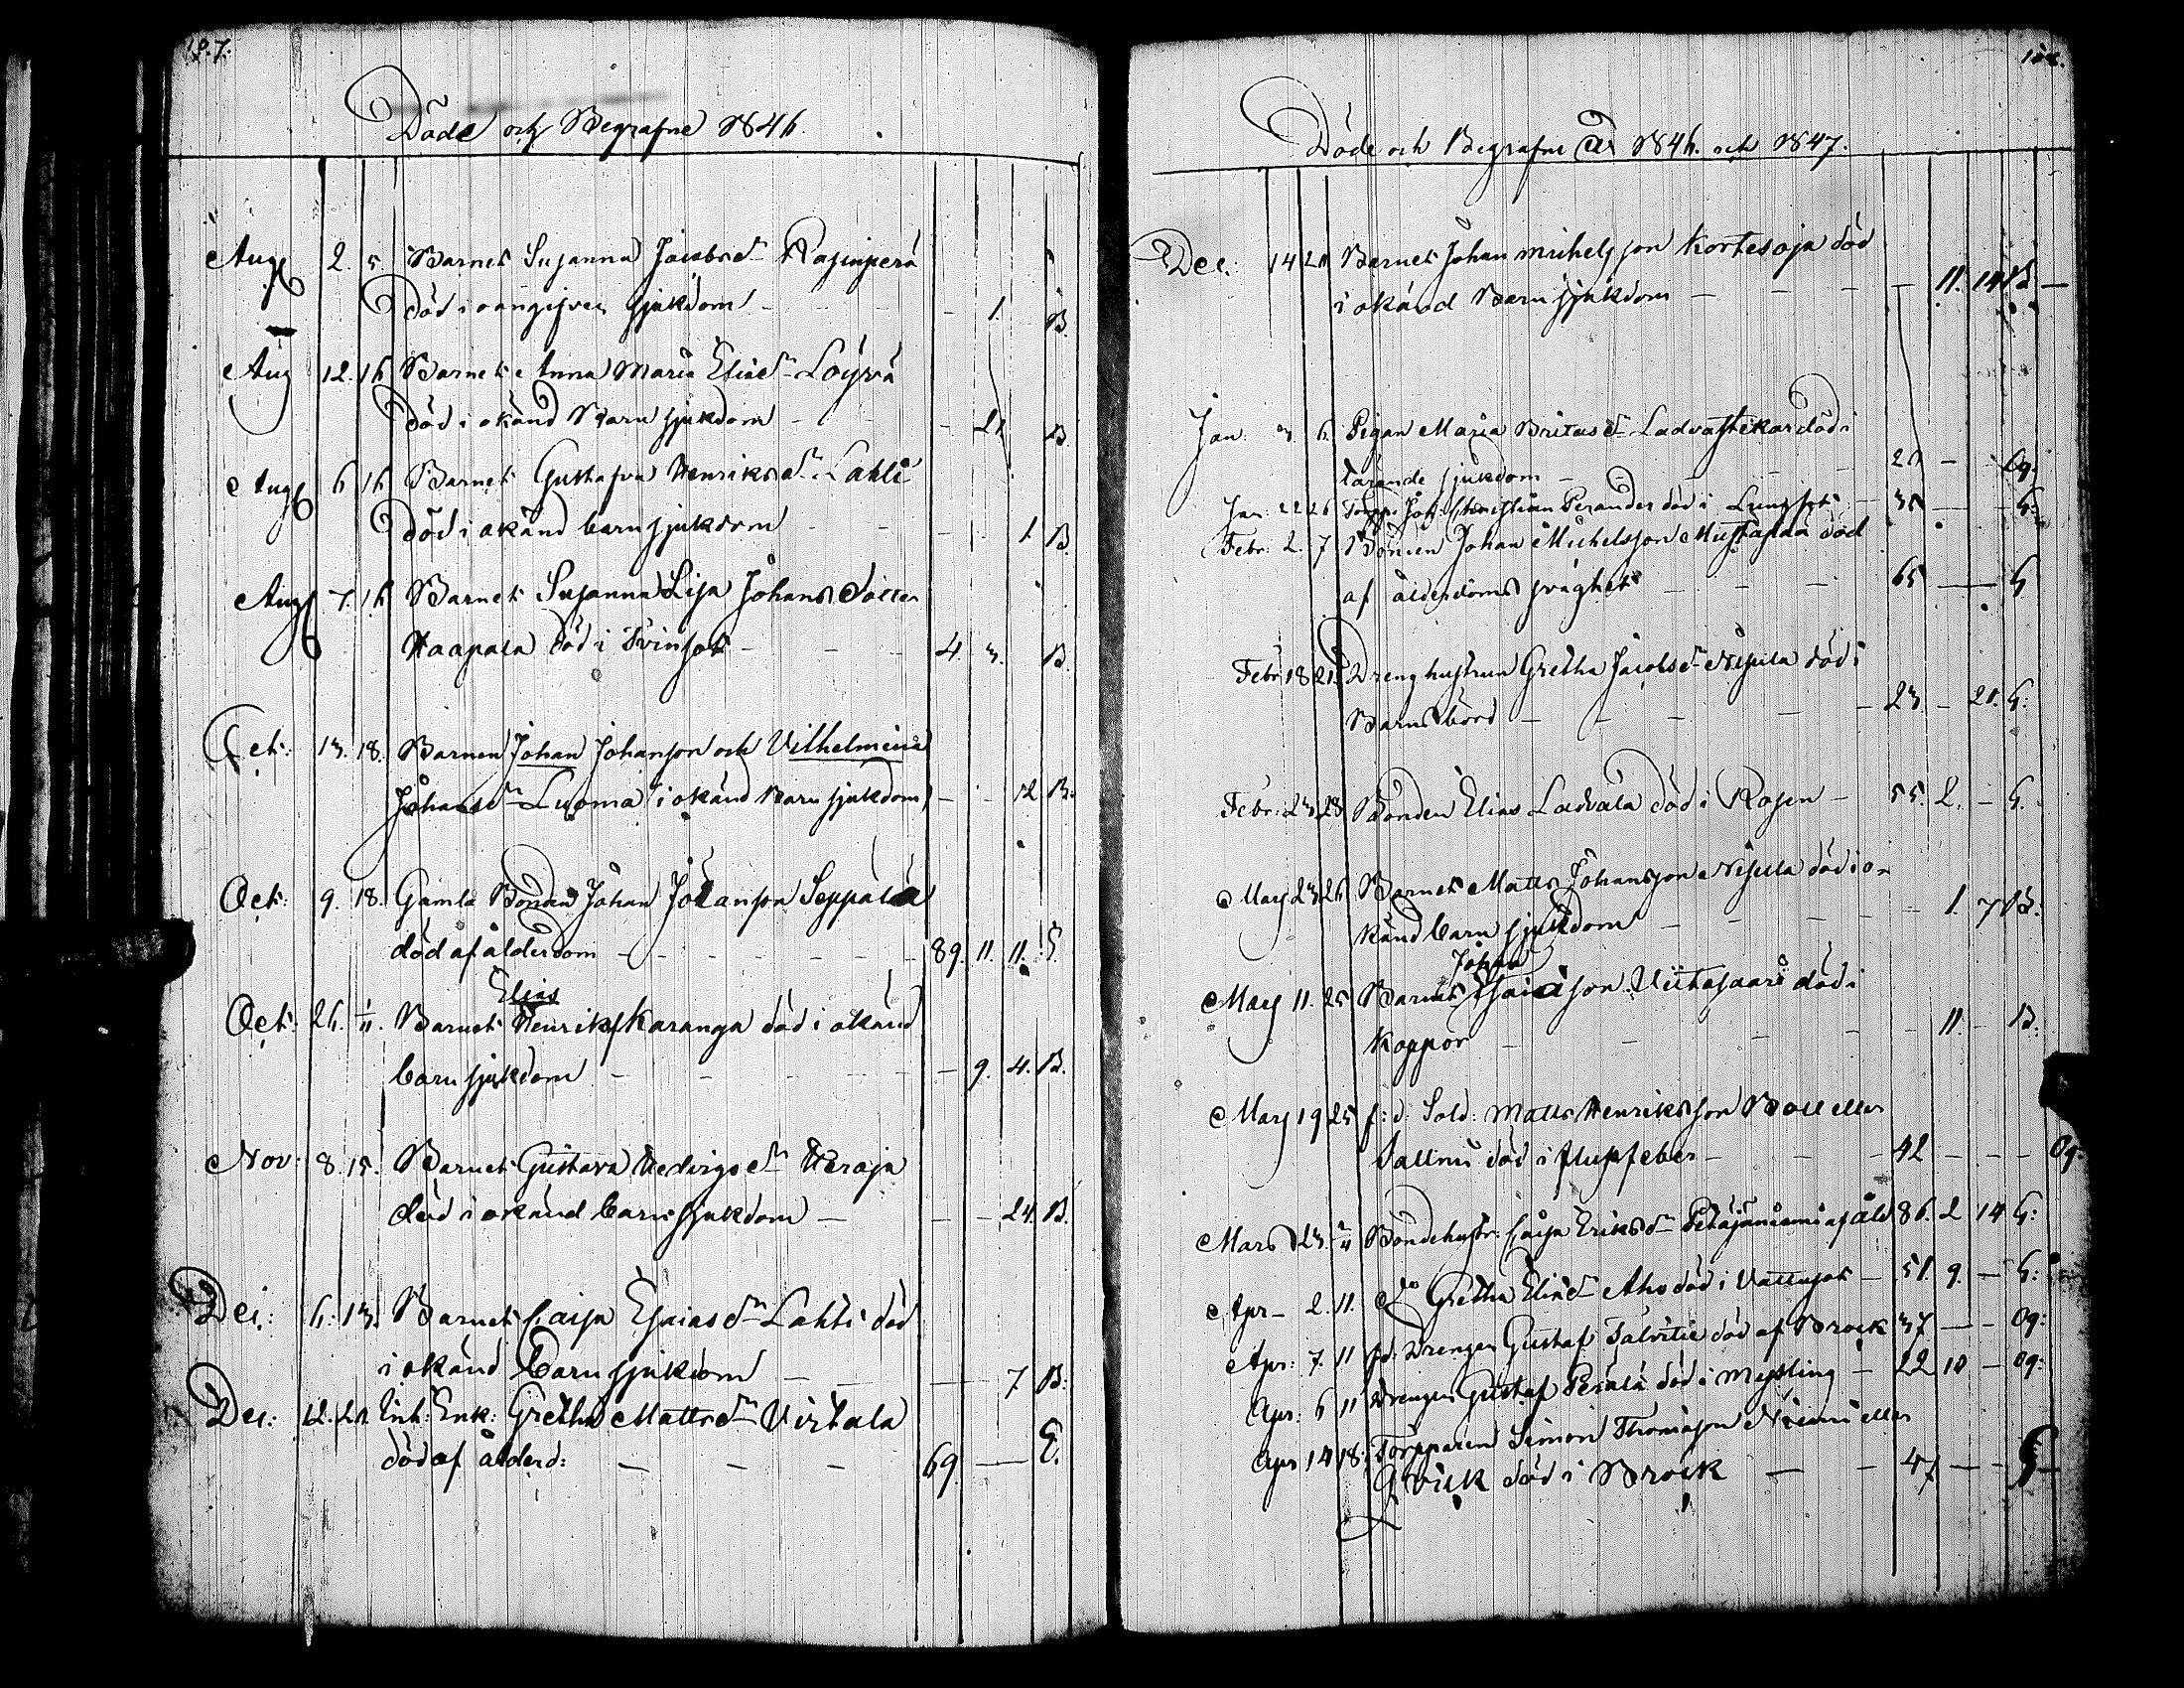 107.
Döde och Begrafne 1846.
Aug 2. 5 Barnet Susanna Jacobsdr
död i oangifven sjukdom - 1. B.
Aug 12. 16 Barnet Anna Maria Eliædr Löyvä
död i okänd Barnsjukdom - 21 B.
Aug 6 16 Barnet Gustafva Henriksdr Lahti
död i okänd barnsjukdom - 1 B.
Aug 7. 16 Barnet Susanna Lisa Johansdotter
Haapala död i Tvinsot - 4. 3. B.
Oct: 13. 18. Barnen Johan Johanson och Vilhelmina
Johansdr Luoma i okänd Barnsjukdom - - 12 B.
Oct: 9. 18. Gamla Bonden Johan Johanson Seppälä
död af ålderdom - 89. 11. 11. G
Elias
Oct: 26. 1/11. Barnet Henrikss Karanga död i okänd
barnsjukdom - 9. 4. B.
Nov: 8. 15. Barnet Gustava Hedvigsdr Heroja
död i okänd barnsjukdom - - - 24. B.
Dec: 6. 13. Barnet Caisa Esaiasdr Lahti död
i okänd barnsjukdom - 7 B.
Dec: 12. 20 Inh: Enk: Gretha Mattsdr Virtala
död af ålderd: - - - 69. - E.
108.
Döde och Begrafne år 1846. och 1847.
Dec: 14 20 Barnet Johan Michelsson Kortesoja död
i okänd Barnsjukdom - - - - 11. 14 B -
Jan: 3. 6. Pigan Maria Britasdr död i
tärande sjukdom - 20 - - Og.
Jan: 22 26 Torpp: Joh: Christian Perander död i Lungsot - 35 - - G:
Febr: 2. 7 Bonden Johan Michelsson död
af ålderdoms svaghet - - 65 - G
Febr 18 21. Drenghustrun Gretha Jacobsdr Nisula död i
Barnsbörd - - - - 23. - 21. G:
Febr: 23 28 Bonden Elias Ladvala död i Rosen - 55. 2. - G.
Mars 23 26 Barnet Matts Johansson Nisula död i o-
känd barnsjukdom - - - 1. 7 B.
Johan
Mars 11. 25 Barnet Esaiæson Viitasaari död i
Koppor - - - - 11. - B.
Mars 19 25 f: d: Sold: Matts Henriksson Boll eller
Sallmi död i slupfeber - - 42 - - - Og.
Mars 23. 1/4 Bondehustr: Caisa Eriksdr Petäjäniemi af åld 86. 2 14 G:
Apr - 2. 11. do Gretha Eliædr Aho död i Vattusot - 51. 9. - G:
Apr: 7. 11 fd: Drengen Gustaf Talvitie död af Brock 37 - - Og:
Apr: 6 11 Drengen Gustaf Perälä död i Messling - 22 10 - Og:
Apr 14 18. Torpparen Simon Thomasson Niemi eller
Qvick död i Brock - - 47 - - G